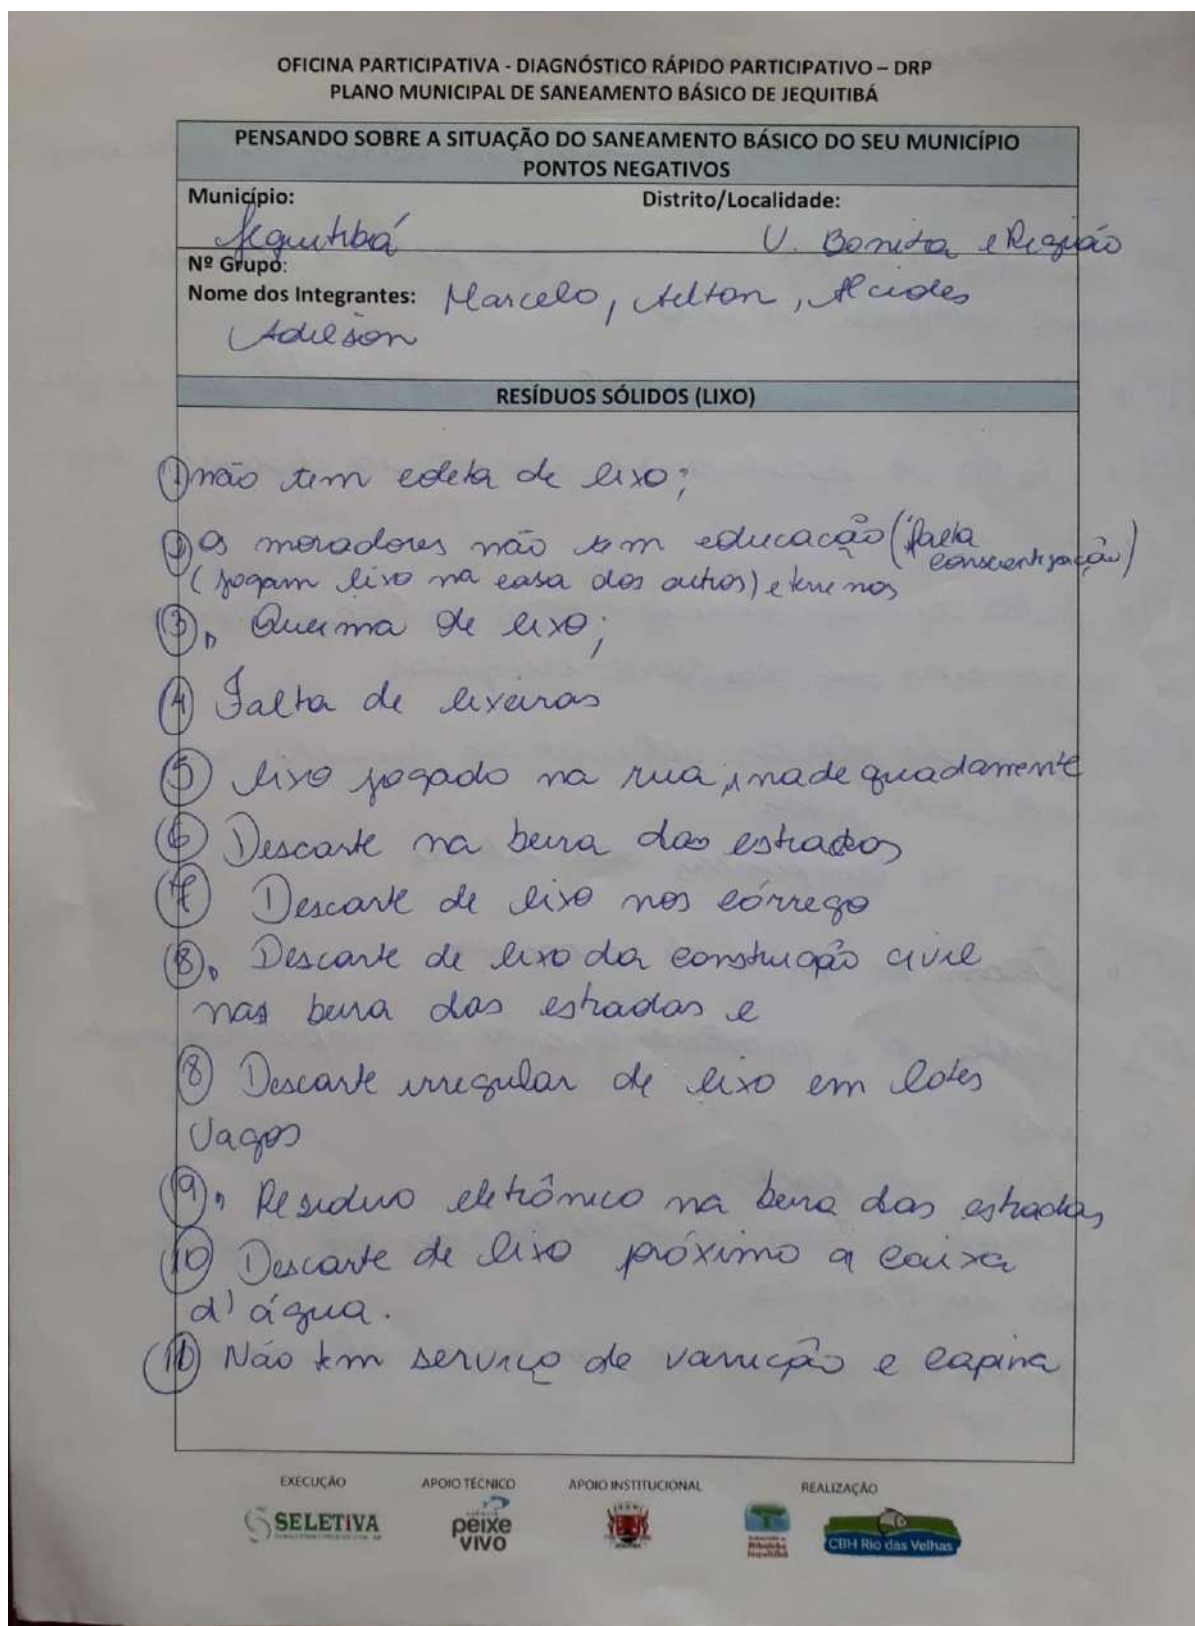 OFICINA PARTICIPATIVA - DIAGNÓSTICO RÁPIDO PARTICIPATIVO – DRP
PLANO MUNICIPAL DE SANEAMENTO BÁSICO DE JEQUITIBÁ
PENSANDO SOBRE A SITUAÇÃO DO SANEAMENTO BÁSICO DO SEU MUNICÍPIO
PONTOS NEGATIVOS
Município: Distrito/Localidade:
Jequitibá V. Bonita e Região
Nº Grupo:
Nome dos Integrantes: Marcelo, Ailton, Alcides
Adilson
RESÍDUOS SÓLIDOS (LIXO)
1 não tem coleta de lixo;
2 os moradores não tem educacação (falta
conscientização)
(jogam lixo na casa dos outros) e terrenos
3, Queima de lixo;
4 Falta de lixeiras
5 lixo jogado na rua, inadequadamente
6 Descarte na beira das estradas
7 Descarte de lixo nos córrego
8, Descarte de lixo da construção civil
nas beira das estradas e
8 Descarte irregular de lixo em lotes
Vagos
9, Residuo eletrônico na beira das estradas
10 Descarte de lixo próximo a caixa
d'água.
11 Não tem serviço de varrição e capina
EXECUÇÃO APOIO TÉCNICO APOIO INSTITUCIONAL REALIZAÇÃO
SELETIVA
peixe
vivo
Ribeirão
Jequitibá
CBH Rio das Velhas